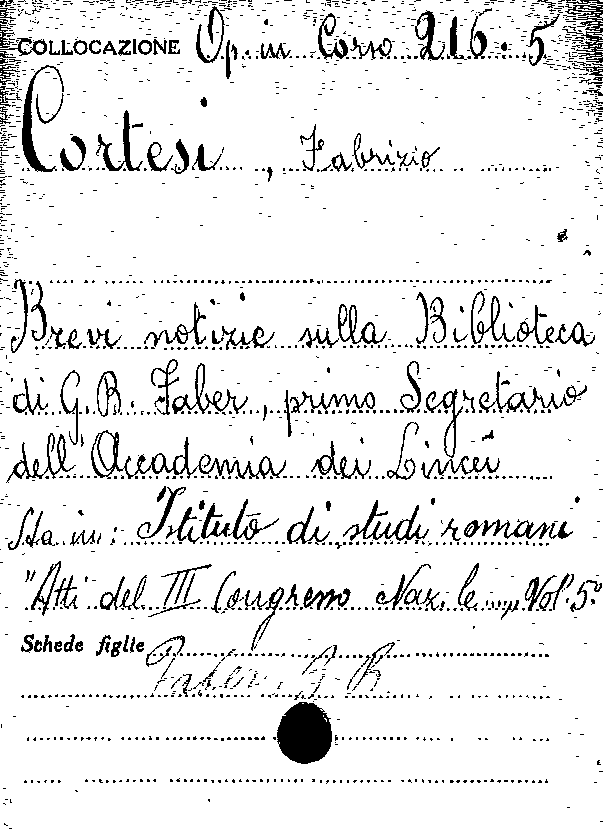 COLLOCAZIONE Op. in Corso 216. 5
Cortesi, Fabrizio
Brevi notizie sulla Biblioteca
di G. B. Faber, primo Segretario
dell'Accademia dei Lincei
Sta in: Istituto di studi romani
"Atti del III Congresso Naz.le ...., Vol. 5°
Schede figlie
Faber, G. B.